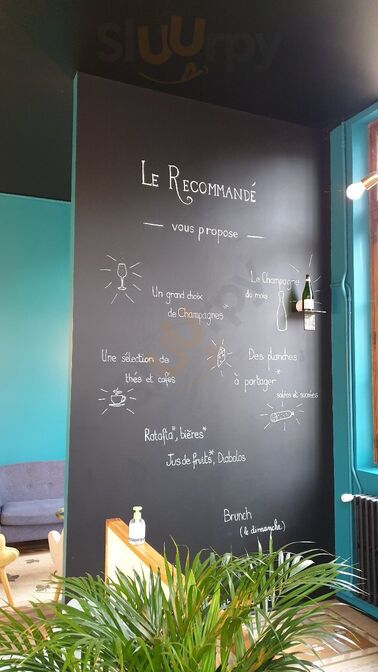 Sluurpy
LE RECOMMANDÉ
— vous propose —
Le Champagne
du mois
Un grand choix
de Champagnes
Une sélection de
thés et cafés
Des planches
à partager*
salées et sucrées
Ratafia*, bières*
Jus de fruits*, Diabolos
Brunch
(le dimanche)